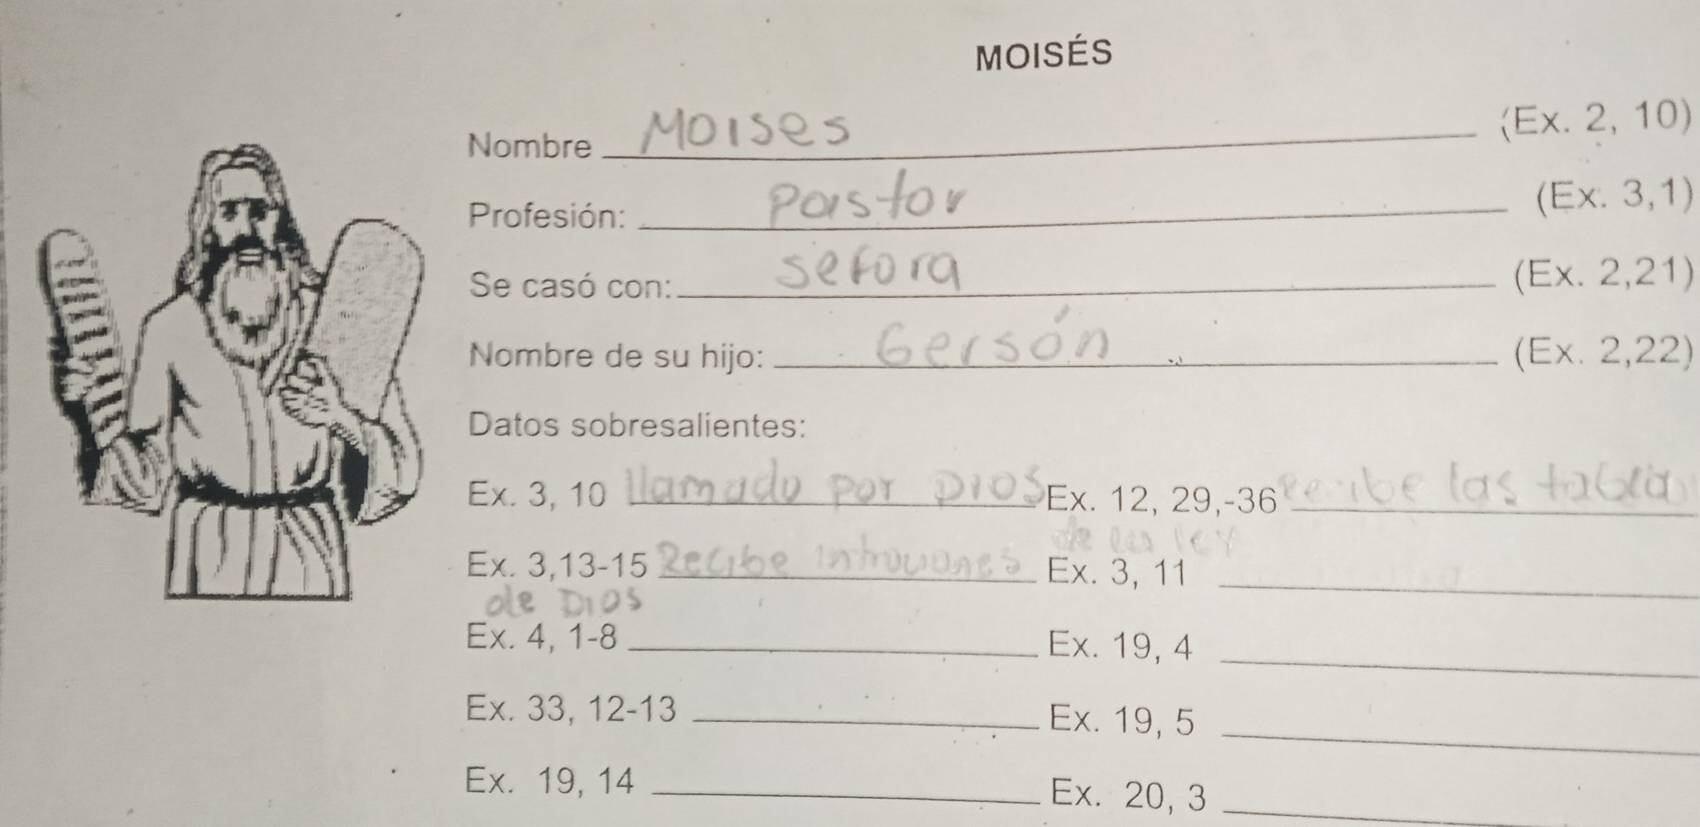 MOISÉS
Nombre Moises (Ex. 2, 10)
Profesión: pastor (Ex. 3,1)
Se casó con: sefora (Ex. 2,21)
Nombre de su hijo: Gersón (Ex. 2,22)
Datos sobresalientes:
Ex. 3, 10 llamado por DIOS Ex. 12, 29,-36 recibe las tabla
de la ley
Ex. 3,13-15 Recibe Ex. 3, 11
de DIOS
Ex. 4, 1-8 Ex. 19, 4
Ex. 33, 12-13 Ex. 19, 5
Ex. 19, 14 Ex. 20, 3